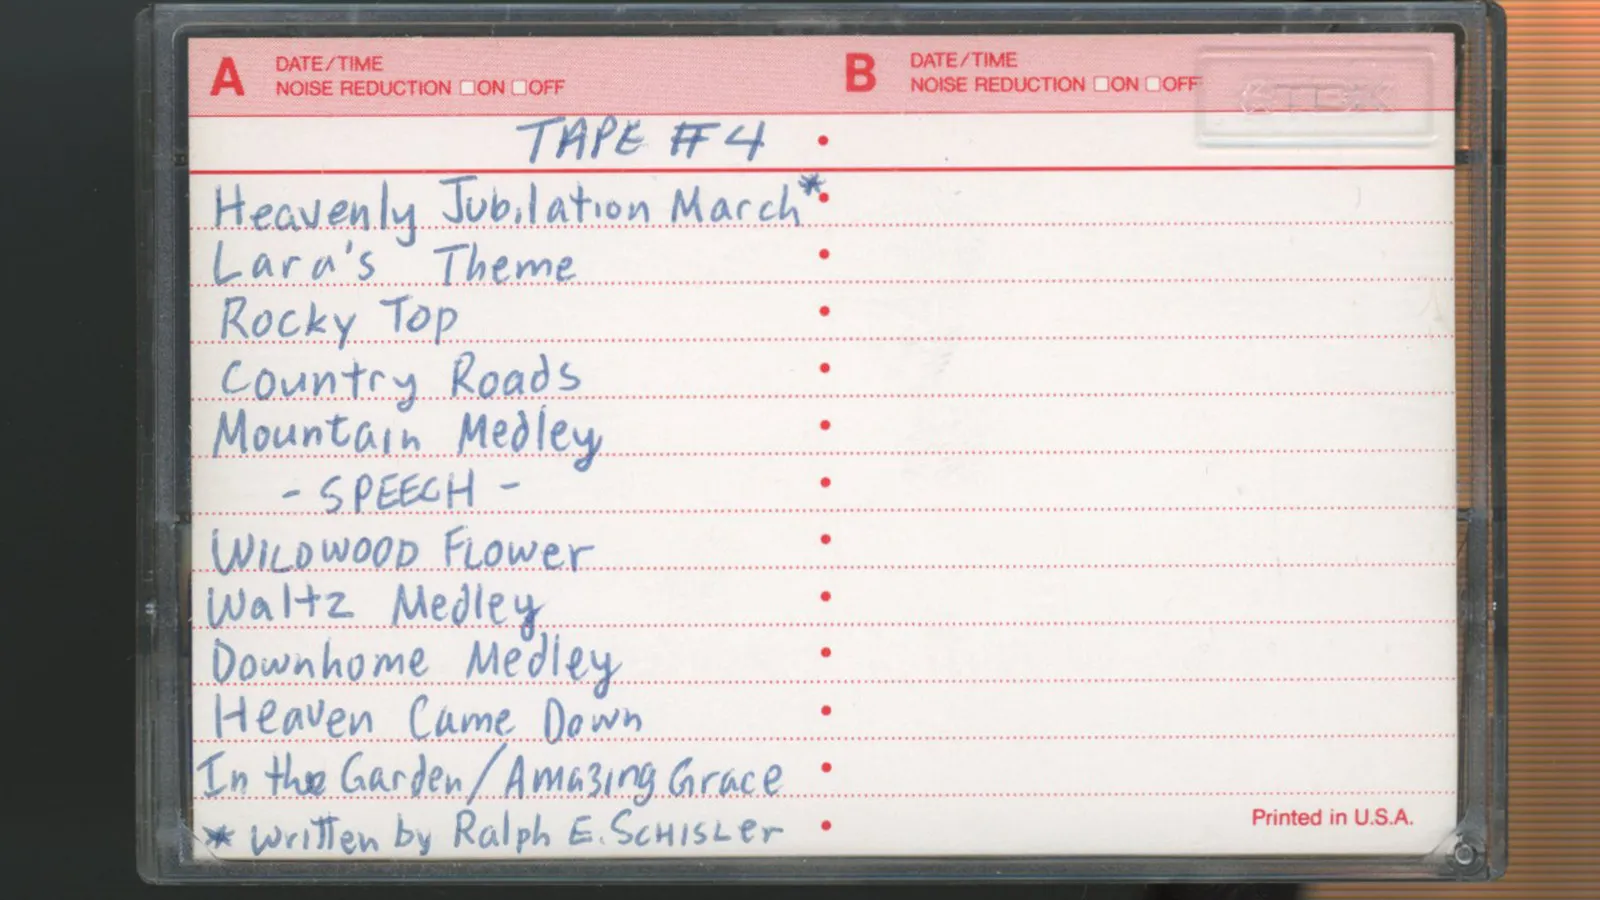 A DATE/TIME
NOISE REDUCTION ☐ON ☐OFF
B DATE/TIME
NOISE REDUCTION ☐ON ☐OFF
TDK
TAPE #4
Heavenly Jubilation March*
Lara's Theme
Rocky Top
Country Roads
Mountain Medley
- SPEECH -
WILDWOOD FLOWER
Waltz Medley
Downhome Medley
Heaven Came Down
In the Garden/Amazing Grace
* written by Ralph E. SCHISLER
Printed in U.S.A.